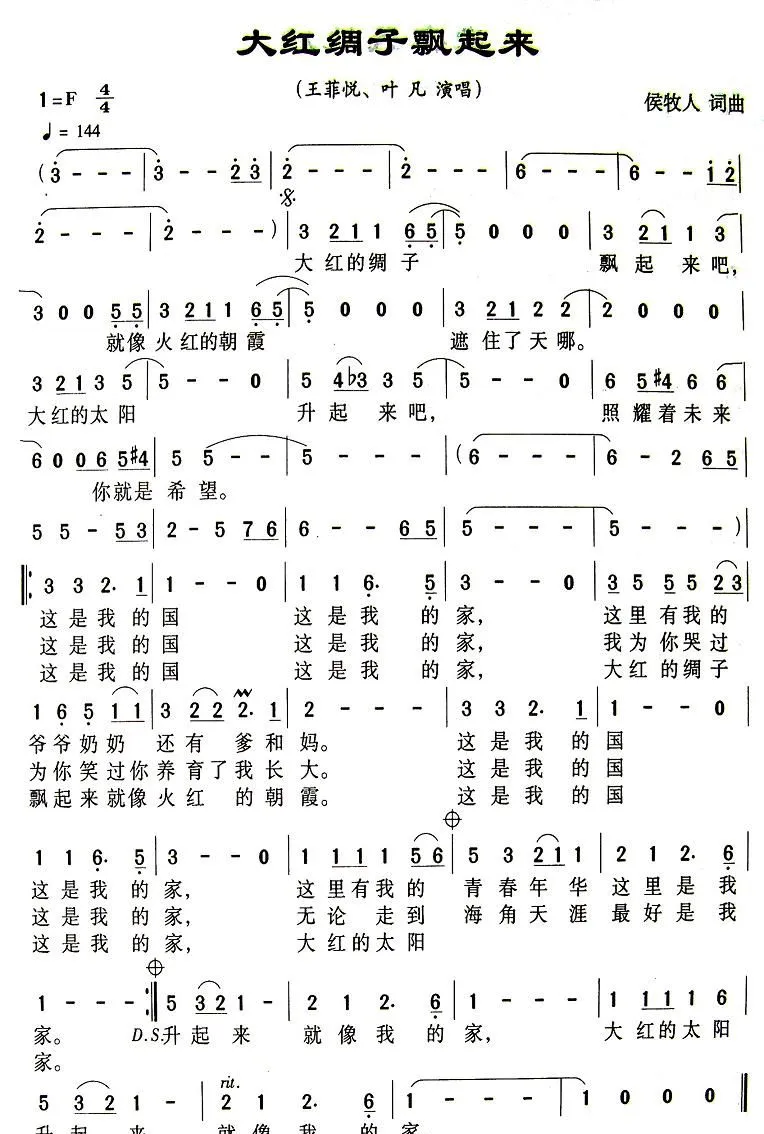 大红绸子飘起来
(王菲悦、叶 凡 演唱)
1=F 4/4
侯牧人 词曲
♩= 144
(3 - - - 3 - - 2 3 2 - - - 2 - - - 6 - - - 6 - - 1 2
2 - - - 2 - - - ) 3 2 1 1 6 5 5 0 0 0 3 2 1 1 3
大红的绸子 飘起来吧,
3 0 0 5 5 3 2 1 1 6 5 5 0 0 0 3 2 1 2 2 2 0 0 0
就像火红的朝霞 遮住了天哪。
3 2 1 3 5 5 - - 0 5 4 ♭3 3 5 5 - - 0 6 5 #4 6 6
大红的太阳 升起来吧, 照耀着未来
6 0 0 6 5 #4 5 5 - - 5 - - - (6 - - - 6 - 2 6 5
你就是希望。
5 5 - 5 3 2 - 5 7 6 6 - - 6 5 5 - - - 5 - - )
3 3 2. 1 1 - - 0 1 1 6. 5 3 - - 0 3 5 5 5 2 3
这是我的国 这是我的家, 这里有我的
这是我的国 这是我的家, 我为你哭过
这是我的国 这是我的家, 大红的绸子
1 6 5 1 1 3 2 2 2. 1 2 - - - 3 3 2. 1 1 - - 0
爷爷奶奶 还有爹和妈。 这是我的国
为你笑过你养育了我长大。 这是我的国
飘起来就像火红的朝霞。 这是我的国
1 1 6. 5 3 - - 0 1 1 1 1 5 6 5 3 2 1 1 2 1 2. 6
这是我的家, 这里有我的 青春年华 这里是我
这是我的家, 无论走到 海角天涯 最好是我
这是我的家, 大红的太阳
1 - - - 5 3 2 1 - 2 1 2. 6 1 - - - 1 1 1 1 6
家。 D.S.升起来 就像我的家, 大红的太阳
家。
rit.
5 3 2 1 - 2 1 2. 6 1 - - - 1 0 0 0
升起来 就像我的家